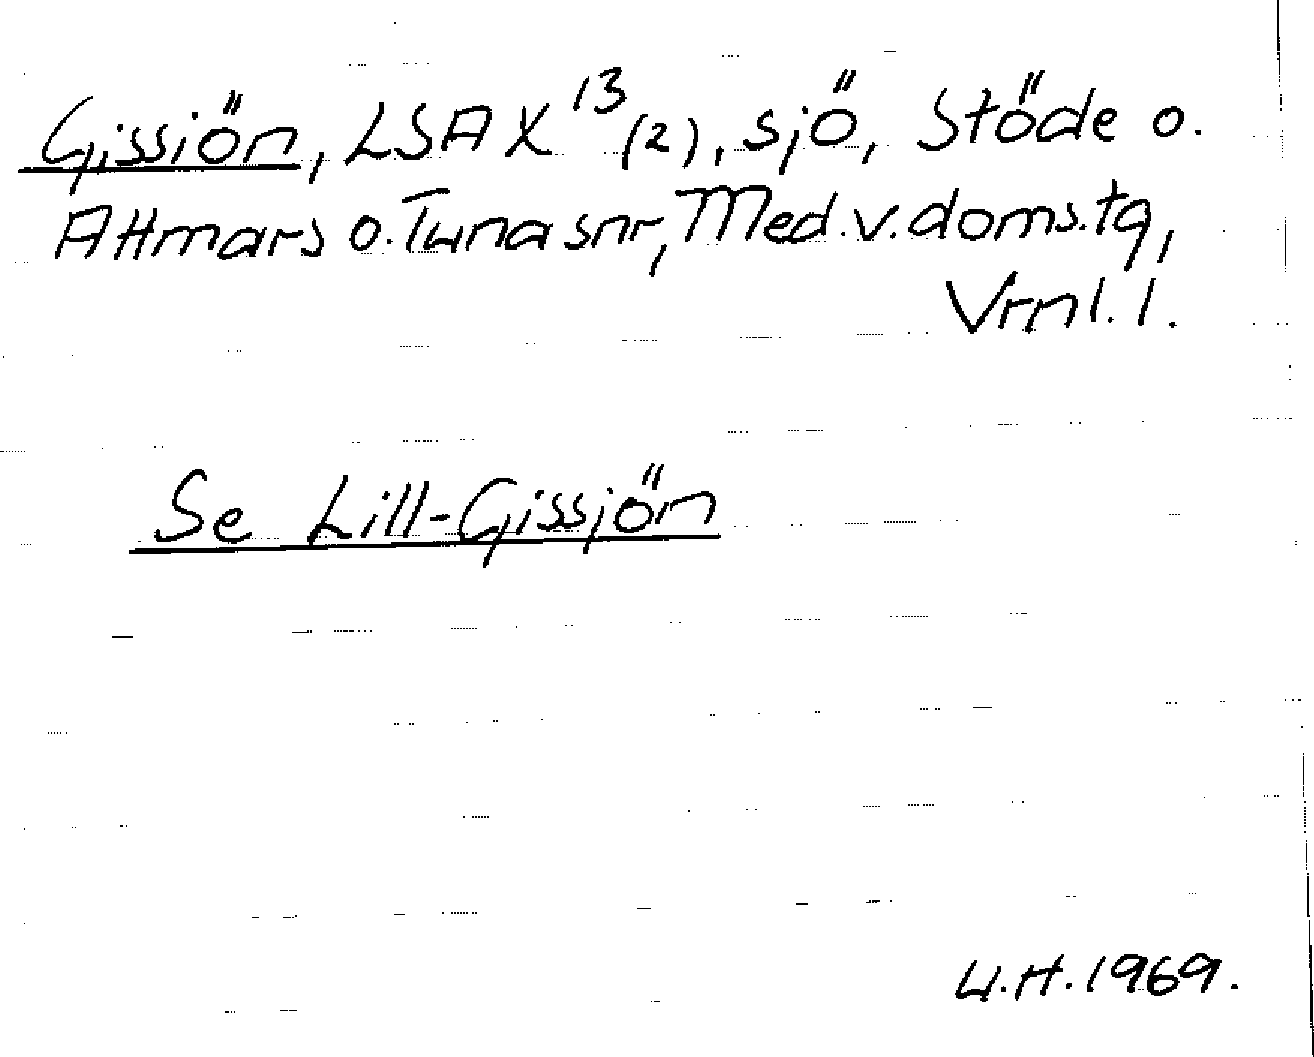 Gissiön, LSA X 13 (2), sjö, Stöde o.
Attmars o. Tuna snr, Med. v. doms. tg,
Vrnl. l.
Se Lill-Gissjön
U.H. 1969.